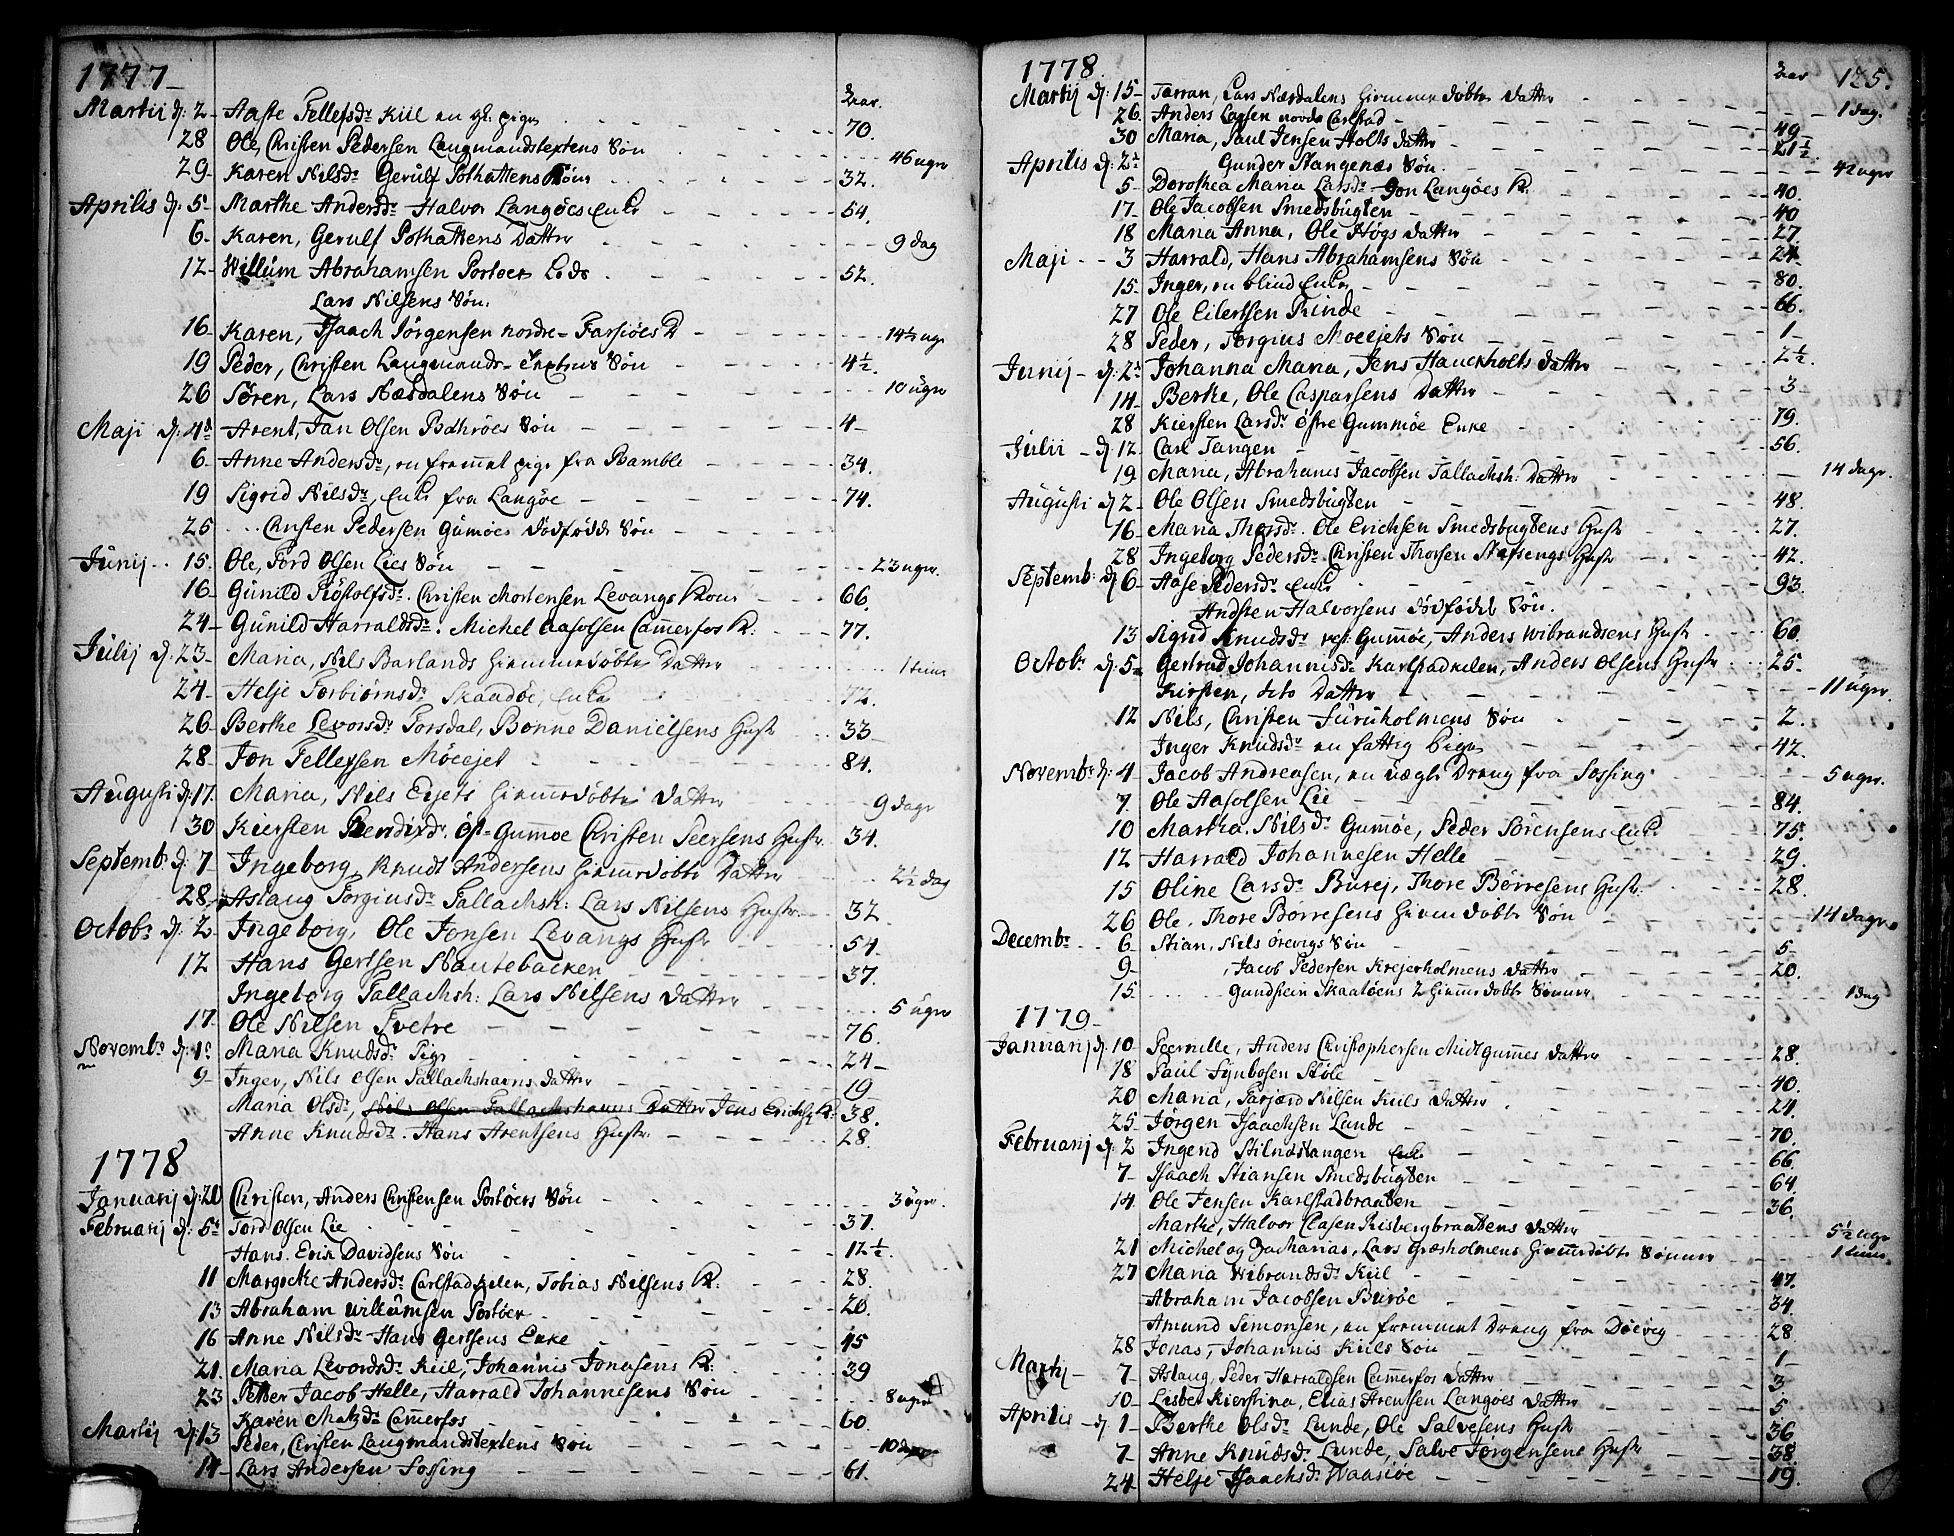 1777
aar.
Martii d: 2 Aaste Tellefsdr Kiil en gl. pige 70.
28 Ole, Christen Pedersen Langmandstextens Søn 46 uger
29 Karen Nilsdr Gerulf Pothattens Kone 32.
Aprilis d: 5 Marthe Andersdr Halvor Langöes Enke 54.
6 Karen, Gerulf Pothattens Datter 9 dag
12 Willum Abrahamsen Portoer Lods 52.
Lars Nilsens Søn.
16 Karen, Isaach Jörgensen nordre Farsiöes D 14½ ug
19 Peder, Christen Langmands Søn 4½.
26 Sören, Lars Næsdalens Søn 10 uger
Maji d: 4 Arent, Jan Olsen Bathröes Søn 4
6 Anne Andersdr, en fremmet pige fra Bamble 34.
19 Sigrid Nilsdr, Enke fra Langöe 74.
25 Christen Pedersen Gumöes dödfödde Søn
Junij 15. Ole, Tord Olsen Lies Søn 23 uger.
16 Gunild Röstolfsdr. Christen Mortensen Levangs Kone 66.
24 Gunild Harraldsdr. Michel Aasolsen Camerfos K: 77.
Julij d: 23 Maria, Nils Barlands hiemmedöbte Datter 1 time
24 Helje Torbiörnsdr Skaadöe, Enke 72.
26 Berthe Levorsdr Torsdal, Bonne Danielsens Hustr 33
28 Jon Tellefsen Möcejet 84.
Augusti d: 17. Maria, Nils Eijets hiemedöbte Datter 9 dage
30 Kiersten öst-Gumoe Christen Peersens Hustr. 34.
Septemb. d: 7 Ingeborg, Knudt Andersens hiemedöbte Datter 2½ dag
28. Aslaug Torgiusdr Tallachsh: Lars Nilsens Hustr. 32
Octob: d: 2 Ingeborg, Ole Jonsen Levangs Hustr 54.
12 Hans Gertsen Nautebacken 37.
Ingeborg Tallachsh: Lars Nilsens Datter 5 uger
17. Ole Nilsen Tvetre 76.
Novemb: d: 1 Maria Knudsdr Pige 24
9 Inger, Nils Olsen Tallachshavns datter 19
Maria Olsdr, Nils Olsen Tallachshavns Datter Jens Erichs K: 38.
Anne Knudsdr. Hans Arentsens Hustr. 28.
1778
Januarij d: 20 Christen, Anders Christensen Portöers Søn 3 uger.
Februarij d: 5 Tord Olsen Lie 37.
Hans. Erik Davidsens Søn 12½.
11 Margrethe Andersdr Carlstadkilen, Tobias Nilsens K: 28.
13 Abraham Willumsen Portöer 20.
16 Anne Nilsdr Hans Gertsens Enke 45
21. Maria Levordsdr Kiil, Johannis Jonasens K: 39
23 Petter Jacob Helle, Harrald Johannesens Søn 8 uger
Karen Matzdr Camerfos 60.
Martij d: 13 Peder, Christen Langmandstextens Søn 10 dage
14 Lars Andersen Fossing 61.
1778. aar 125.
Martij d: 15 Torran, Lars Næsdalens hiemmedöbte datter 1 dag.
26. Anders Larsen nordre Carlstad 49
30 Maria, Paul Jensen Holts datter 21½
Aprilis d: 2 Gunder Stangenæs Søn. 42 uger
5 Dorothea Maria Larsdr Jon Langöes K. 40.
17 Ole Jacobsen Smedsbugten 40
18 Maria Anna, Ole Högs datter 27
Maji 3 Harrald, Hans Abrahamsens Søn 24.
15. Inger, en blind Enke 80.
27 Ole Eilertsen Rinde 66.
28 Peder, Torgius Mocejets Søn 1
Junij d: 2 Johanna Maria, Jens Hauckholts datter 2½.
14 Berthe, Ole Caspersens Datter 3
28 Kiersten Larsdr östre Gummöe Enke 79.
Julii d: 12 Carl Tangen 56.
19 Maria, Abrahams Jacobsen Tallachsh: Datter 14 dage.
Augusti d 2 Ole Olsen Smedsbugten 48.
16 Maria Thorsdr. Ole Erichsen Smedsbugtens Hustr 27.
28 Ingeborg Pedersdr. Christen Thorsen Stafsengs Hustr 42.
Septemb: d 6 Aase Pedersdr Enke 93.
Andsten Halvorsens dödfödde Søn.
13 Sigrid Knudsdr vest Gumöe, Anders Wibrandsens Hustr 60
Octobr d: 5 Gertrud Johannisdr Karlstadkilen, Anders Olsens Hustr 25.
Kirsten, dito Datter 11 uger.
12 Nils, Christen Furuholmens Søn 2.
Inger Knudsdr en fattig Pige 42.
Novembr d: 4 Jacob Andreasen, en uægte Dreng fra Fossing 5 uger.
7. Ole Aasolsen Lie 84.
10 Martha Nilsdr Gumöe, Peder Sörensens Enke 75.
12 Harrald Johannesen Helle 29.
15 Oline Larsdr Buröj, Thore Börresens Hustr. 28.
26 Ole, Thore Börresens hiemdöbte Søn 14 dage
Decembr 6 Stian, Nils örevigs Søn 5
9 , Jacob Pedersen Krejerholmens datter 20.
15. Gundstein Skaatöens 2 hiemedöbte Sönner 1 dag
1779
Januarij d: 10 Peernille, Anders Christophersen Midtgumes datter 28.
18 Paul Synbosen Stöle 40.
20 Maria, Tarjærd Nilsen Kiils datter 24.
25 Jörgen Isaachsen Lunde 70.
Februarij d: 2 Ingerid Stilnestangen Enke 66.
7 Isaach Stiansen Smedsbugten 64
14 Ole Jensen Karlstadbraaten 36.
Marthe, Halvor Clasen Risbergbraatens datter 5½ uge
21 Michel og Zacharias, Lars Græsholmens hiemedöbte Sönner 1 time
27 Maria Wibrandsdr Kiil 47.
Abraham Jacobsen Buröe 34
Amund Simonsen, en fremmet Dreng fra Döevig 28.
28 Jonas, Johannis Kiils Søn 1
Martij 7 Aslaug, Peder Harraldsen Camerfos datter 3
10 Lisbet Kierstina, Elias Arentsen Langöes datter 5
Aprilis d: 1 Berthe Olsdr Lunde, Ole Salvesens Hustr 36
7 Anne Knudsdr Lunde, Salve Jörgensens Hustr 38.
24 Helje Isaachsdr Waasiöe 19.